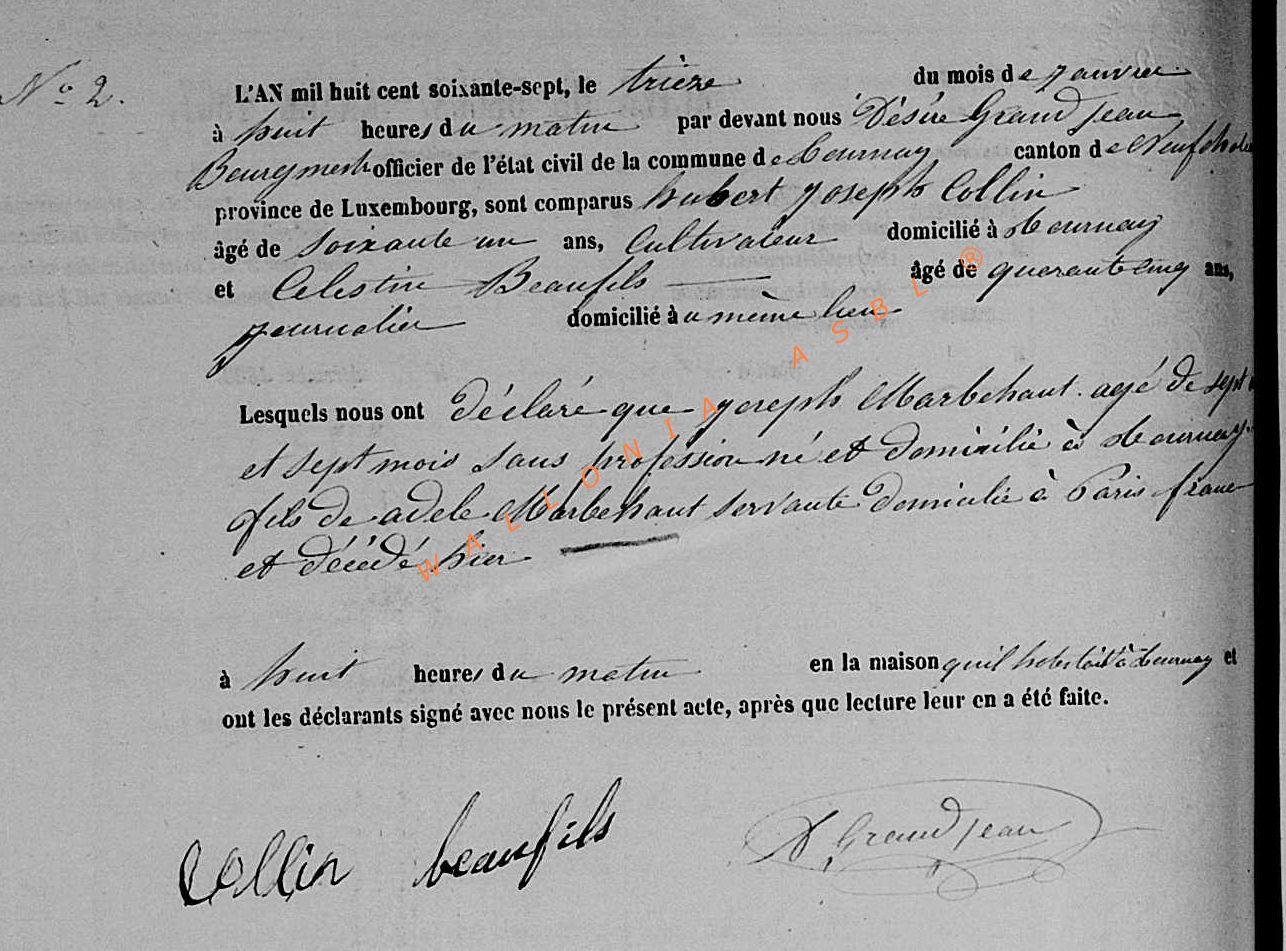 N° 2.
L'AN mil huit cent soixante-sept, le trièze du mois de janvier
à huit heures du matin par devant nous Désiré Grandjean
Bourgmestre officier de l'état civil de la commune de Tournay canton de Neufchateau
province de Luxembourg, sont comparus hubert joseph Collin
âgé de soixante un ans, Cultivateur domicilié à Tournay
et Celestin Beaufils âgé de quarante cinq ans,
journalier domicilié au même lieu
Lesquels nous ont déclaré que joseph Marbehant agé de sept
et sept mois sans profession né et domicilié à Tournay
fils de adele Marbehant servante domicilié à Paris france
et décédé hier
à huit heures du matin en la maison quil habitait à Tournay et
ont les déclarants signé avec nous le présent acte, après que lecture leur en a été faite.
Collin beaufils D Grandjean
WALLONIA ASBL ®